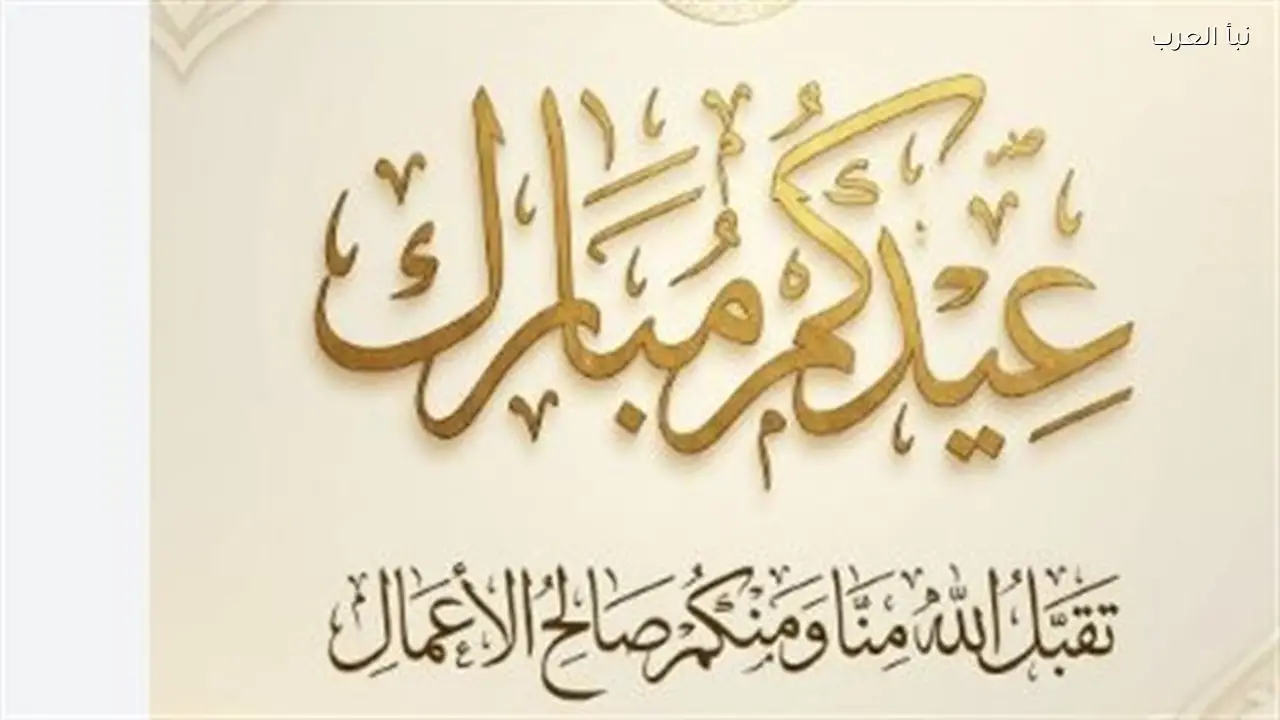 نبأ العرب
عيدكم مبارك
تقبل الله منا ومنكم صالح الأعمال